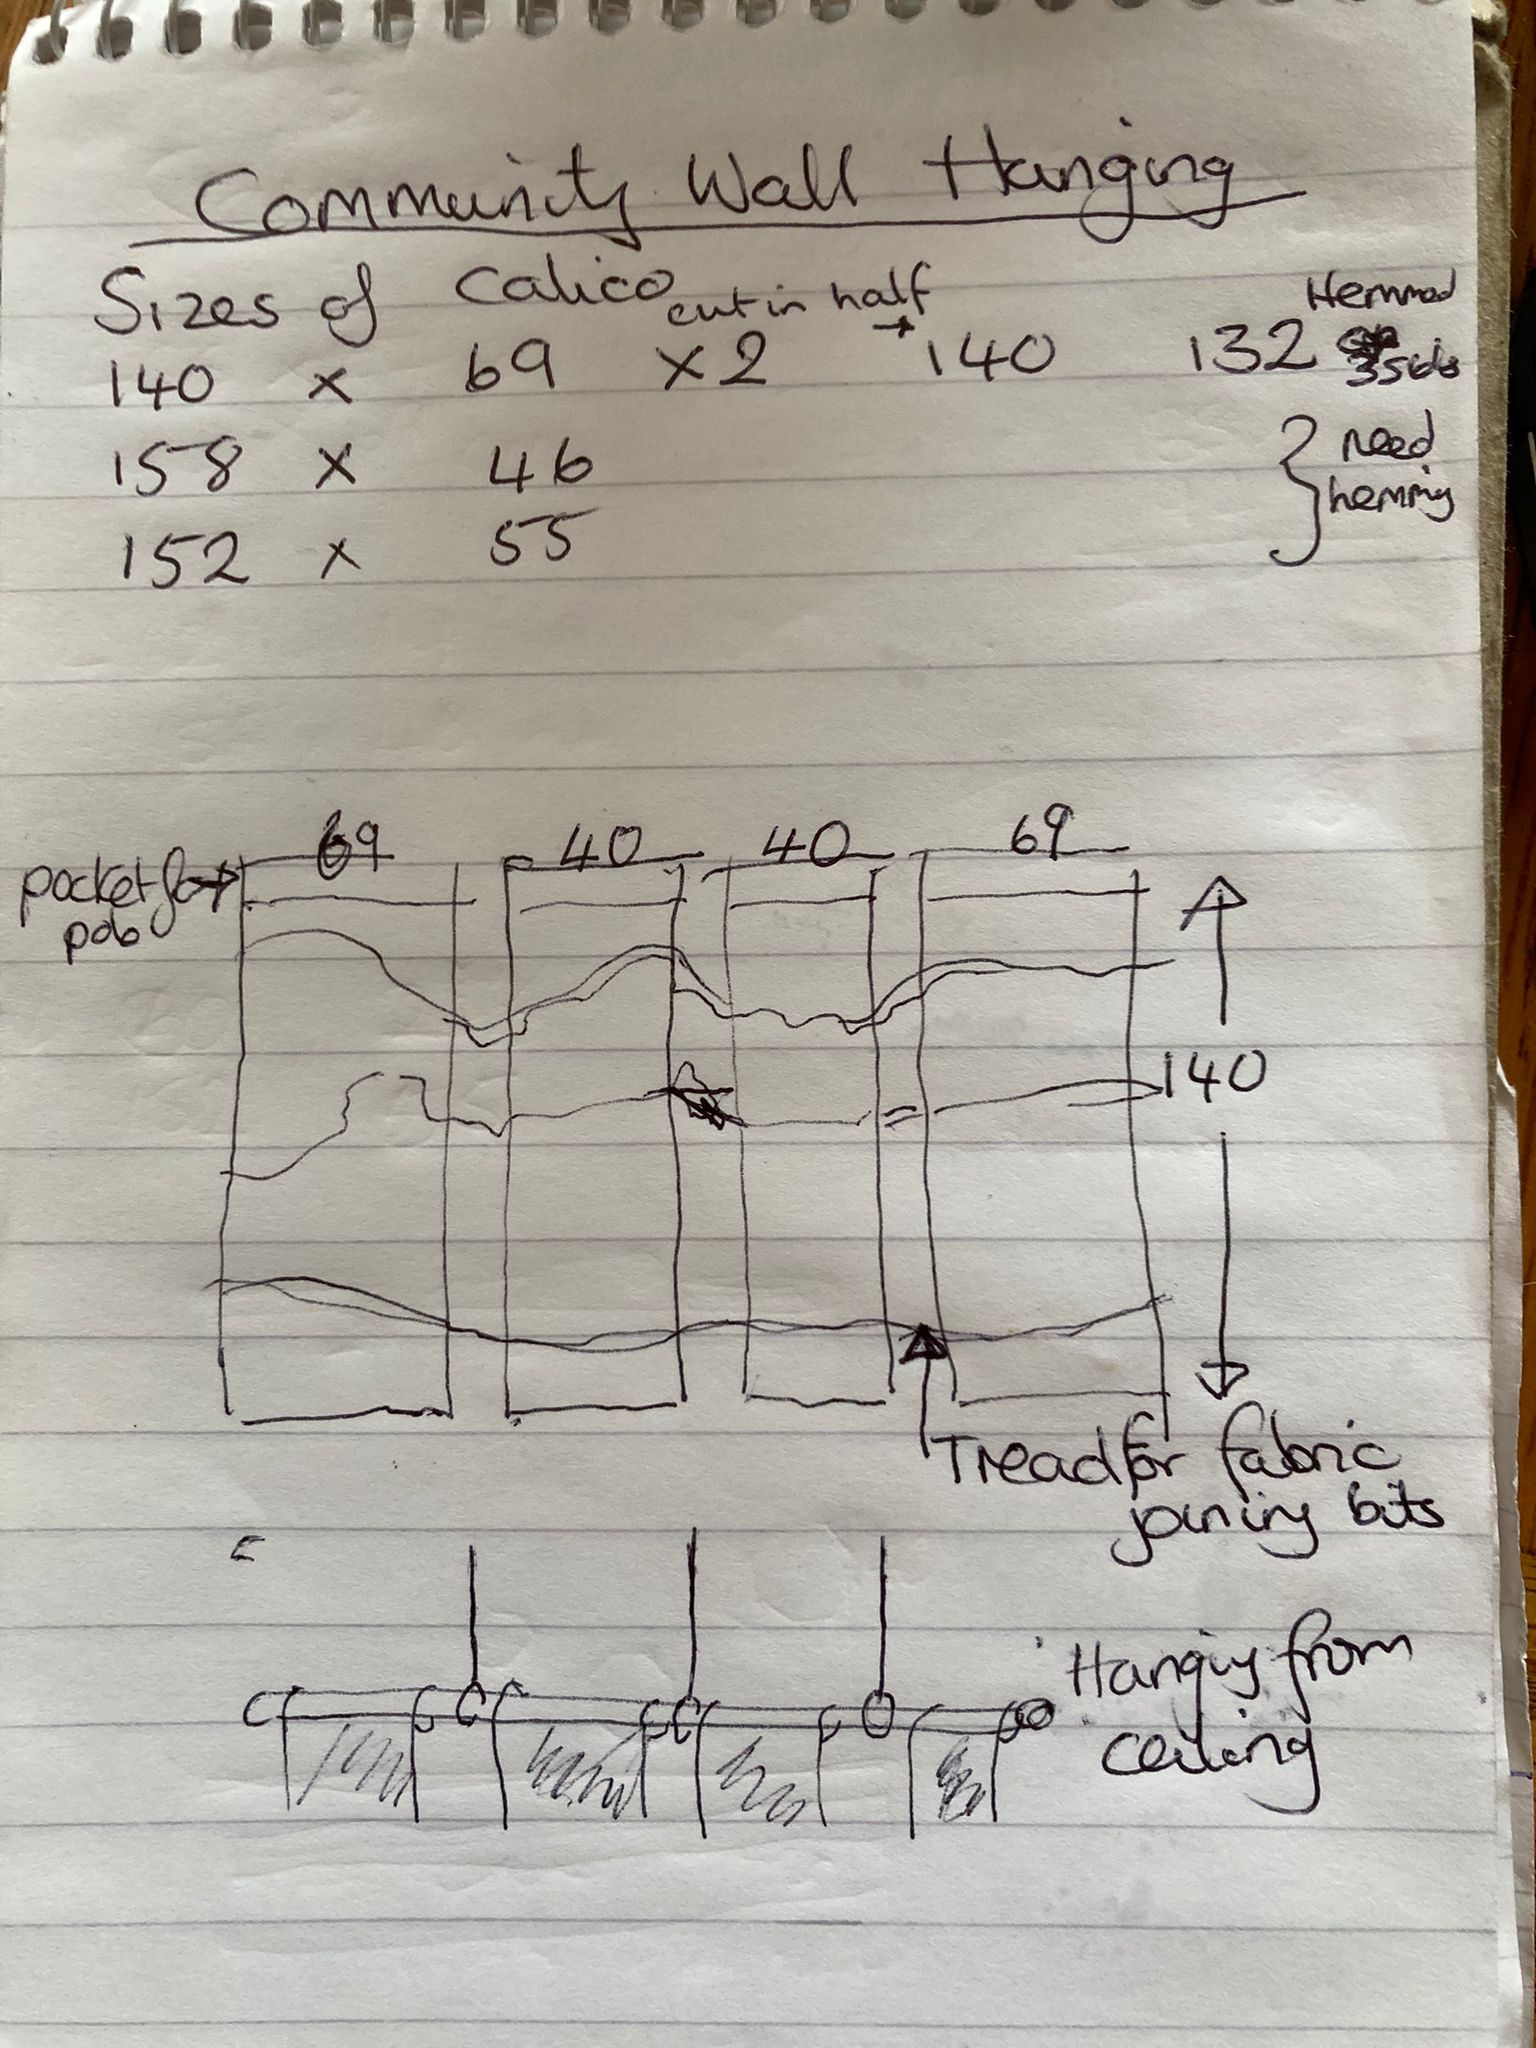 Community Wall Hanging
Sizes of Calico cut in half Hemmed
140 x 69 x2 → 140 132 3 sides
158 x 46 } need
hemming
152 x 55
69 40 40 69
pocket for →
pole
140
Tread for fabric
joining bits
Hanging from
ceiling